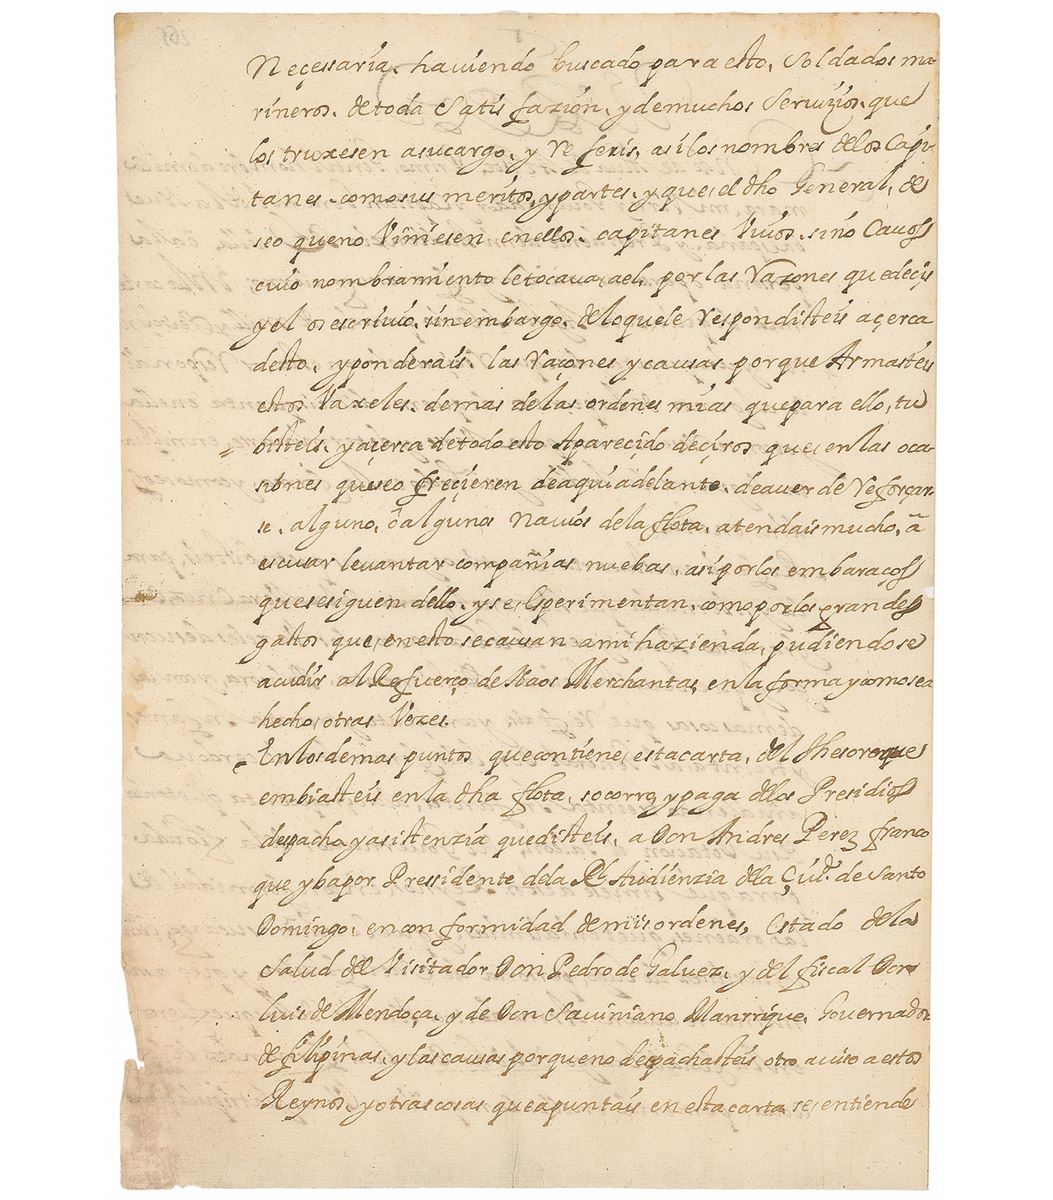 Neçessaria. haviendo buscado para esto, Soldados ma-
rineros. de toda Satisfazion, y de muchos Servizios. que
los truxesen asucargo, y Referis, asi los nombres de los Capi-
tanes. como sus meritos, y partes, y que el dho General, de
seo que no Viniesen en ellos. capitanes Vivos. sino Cavos
cuio nombramiento le tocava, a el, por las Razones que decis
y el os escrivio. sin embargo. de lo que le Respondisteis açerca
desto, y ponderais. las Raçones y causas porque Armasteis
estos Vaxeles. demas de las ordenes mias que para ello, tu
bisteis. y açerca de todo esto A pareçido deçiros que en las oca-
siones que se ofreçieren de aqui adelante. de aver de Reforçar-
se. alguno, ô algunos Navios de la flota. atendais mucho, â
escusar levantar compañias nuebas, asi por los embaracos
que se siguen dello. y se Esperimentan. como por los grandes
gastos que en esto se causan a mi hazienda, pudiendose
acudir al Refuerço de Naos Merchantas, en la forma y como sea
hecho otras Vezes.
En los demas puntos que contiene esta carta, del thesoro que
embiasteis en la dha flota, socorro, y paga de los Presidios
despacho, y asistenzia que disteis, a Don Andres Perez franco
que yba por Pressidente de la Rl Audienzia de la Çiud. de Santo
Domingo. en conformidad de mis ordenes, Estado de la
Salud del Visitador Don Pedro de Galvez, y del fiscal Don
luis de Mendoça, y de Don Saviniano Manrrique. Governador
de filipinas, y las causas porque no despachasteis otro aviso a estos
Reynos, y otras cosas que apuntais en esta carta se entiende